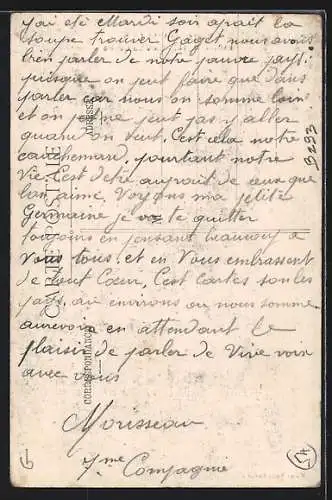 j'ai eté Mardi soir aprait la
soupe trouver Gaiget nous avons
bien parler de notre pauvre pays
puisque on peut faire que dans
parler car nous on somme loin
et on ne peut pas y aller
quand on veut. C'est cela notre
cauchemard, pourtant notre
Vie c'est d'etre auprait de ceux que
lon aime. Voyons ma petite
Germaine je vez te quitter
toujours en pensant beaucoup a
Vous tous. et en Vous embrassent
de tout Cœur. C'est cartes son les
pays au environs ou nous somme
aurevoir en attendant le
plaisir de parler de Vive voix
avec vous
Mousseau
7me Compagnie
CARTE POSTALE
ADRESSE
CORRESPONDANCE
3293